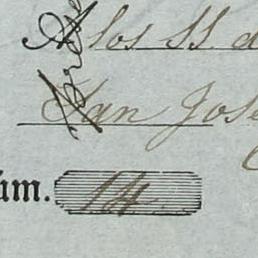 A los SS d
San Jose
úm. 14